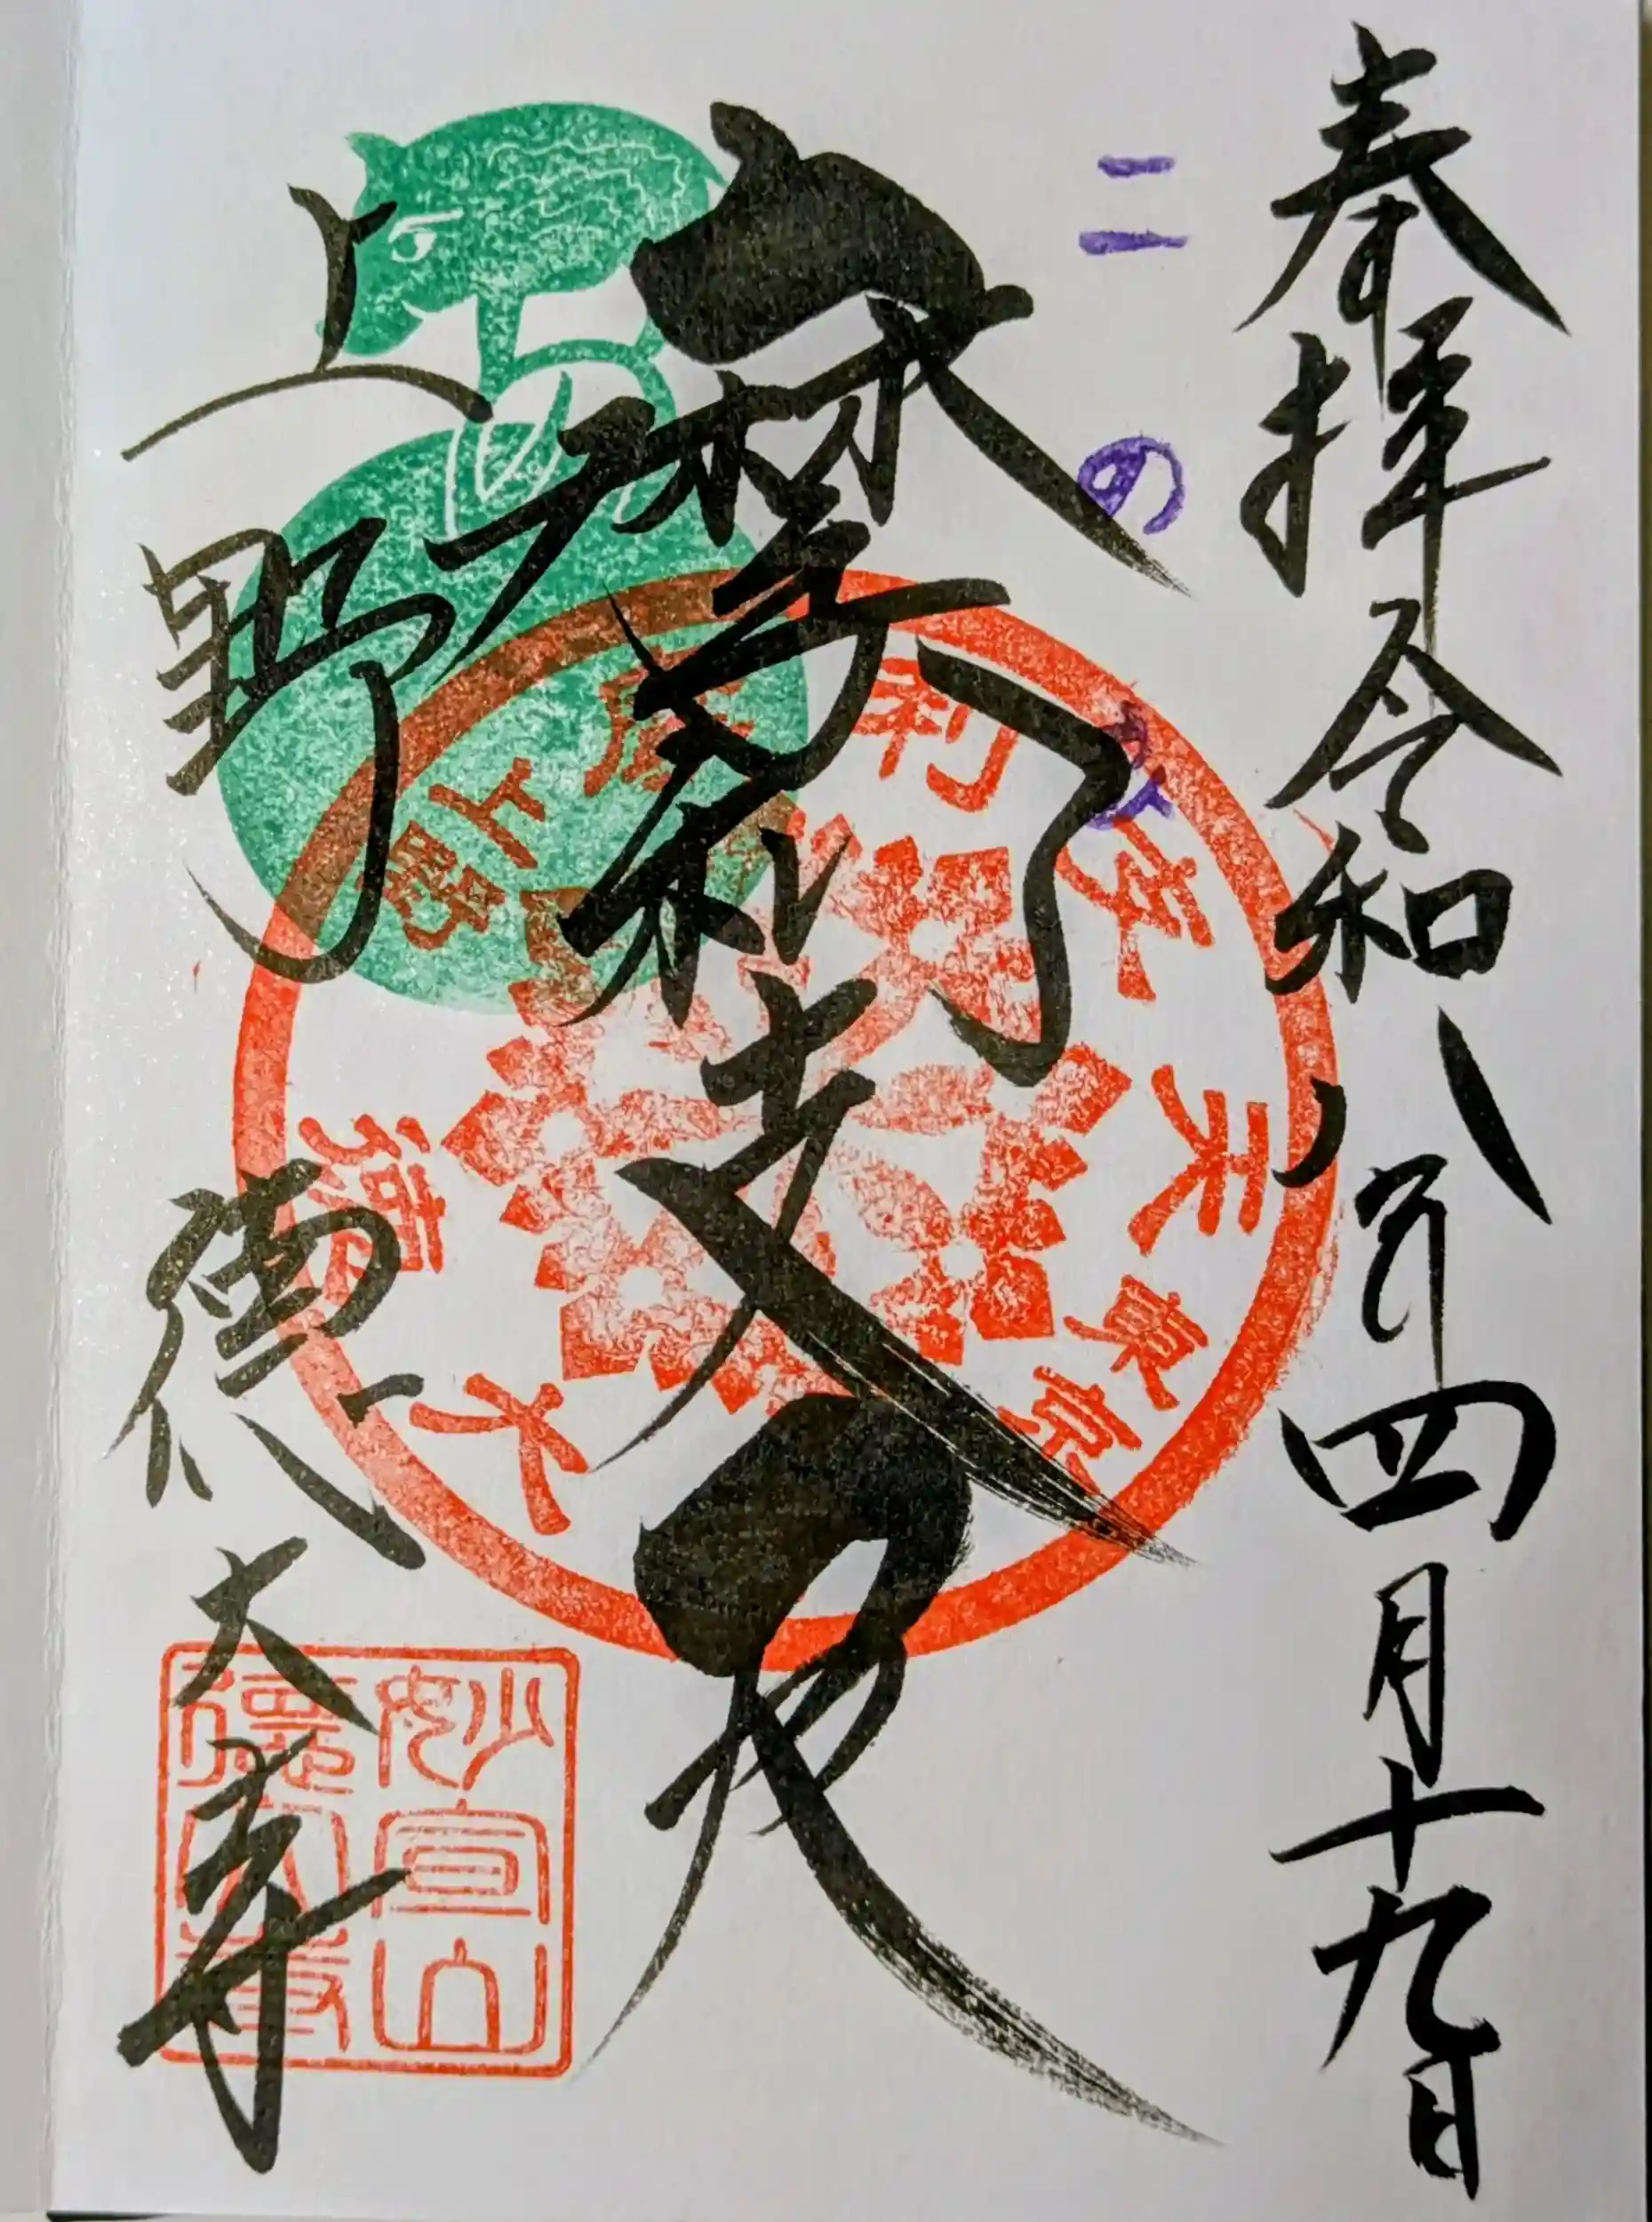 奉拝 令和八年四月十九日
二の
摩利支天
上野 徳大寺
上野 摩利支天
東京
徳大
妙宣山
徳大寺